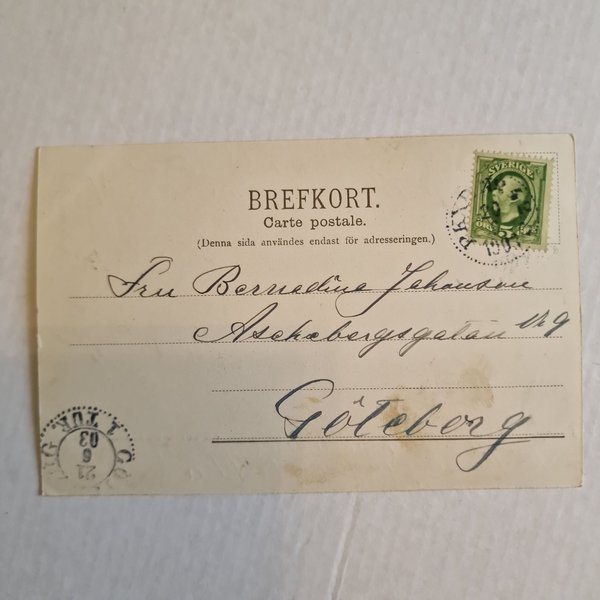 BREFKORT.
Carte postale.
(Denna sida användes endast för adresseringen.)
SVERIGE
ÖRE
Fru Bernadina Johanson
Aschebergsgatan No 9
Göteborg
1 TUR
21
6
03